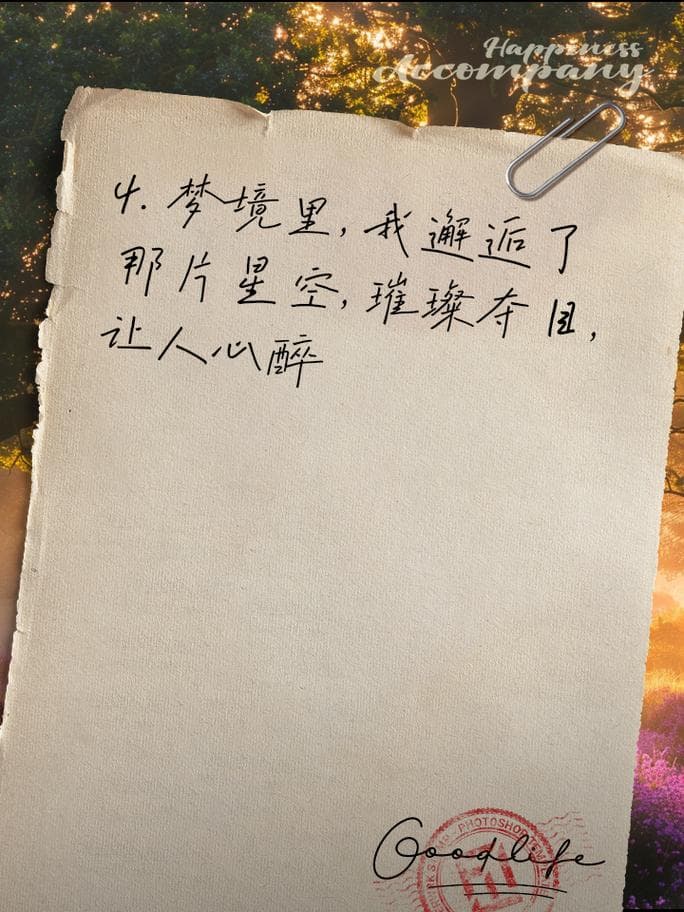 Happiness
Accompany
4. 梦境里,我邂逅了
那片星空,璀璨夺目,
让人心醉
PHOTOSHOP
Goodlife